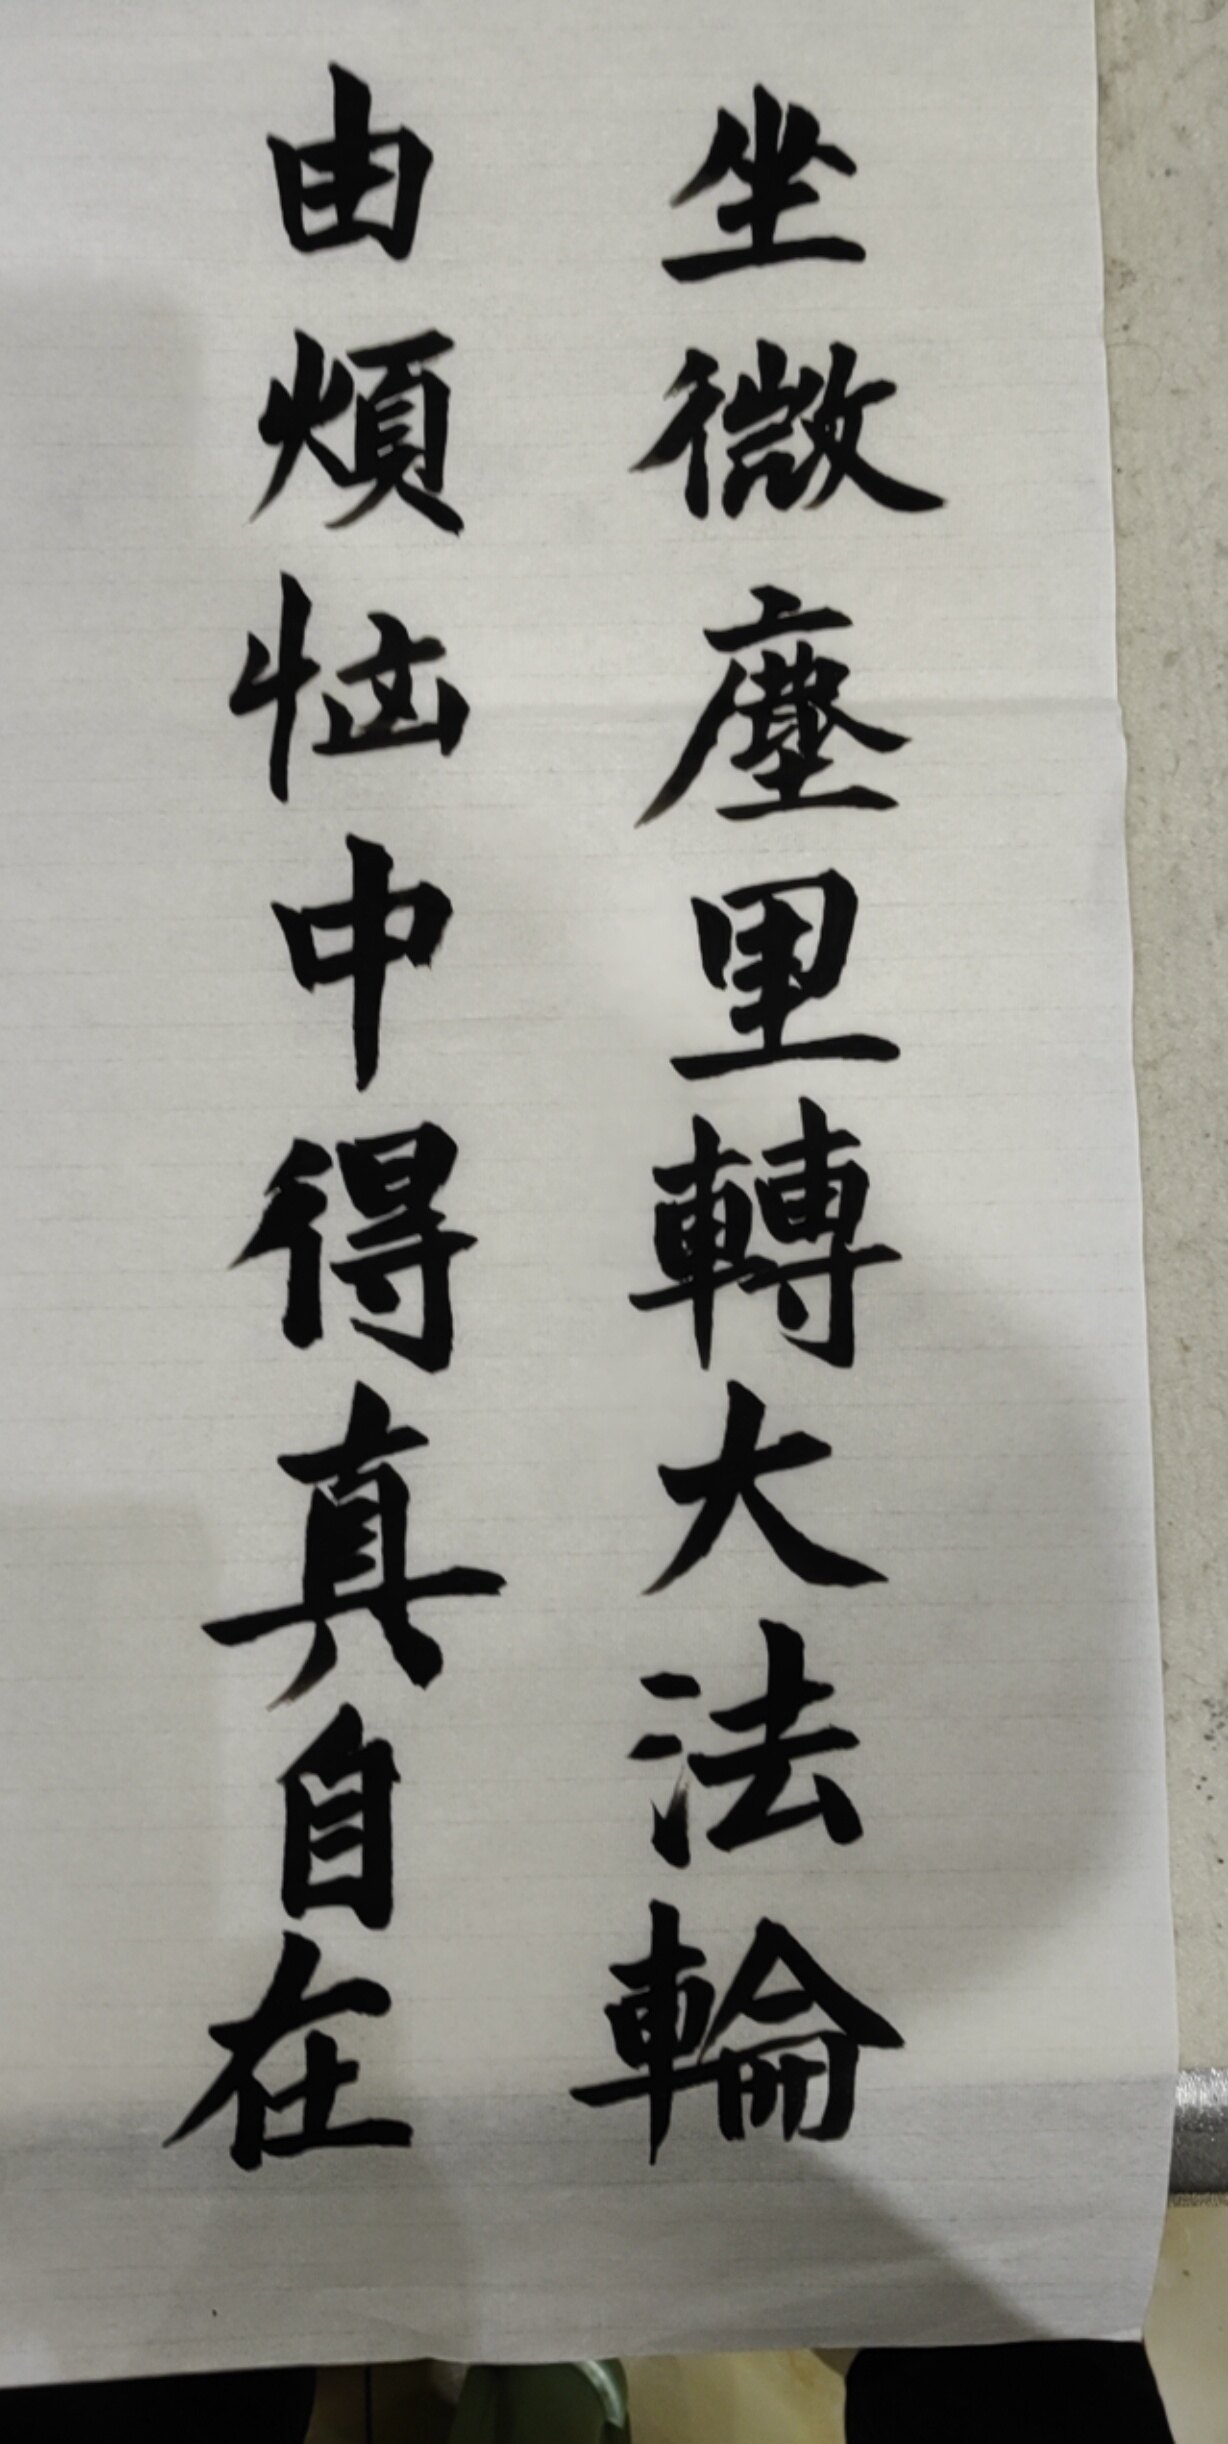 坐微塵里轉大法輪
由煩恼中得真自在